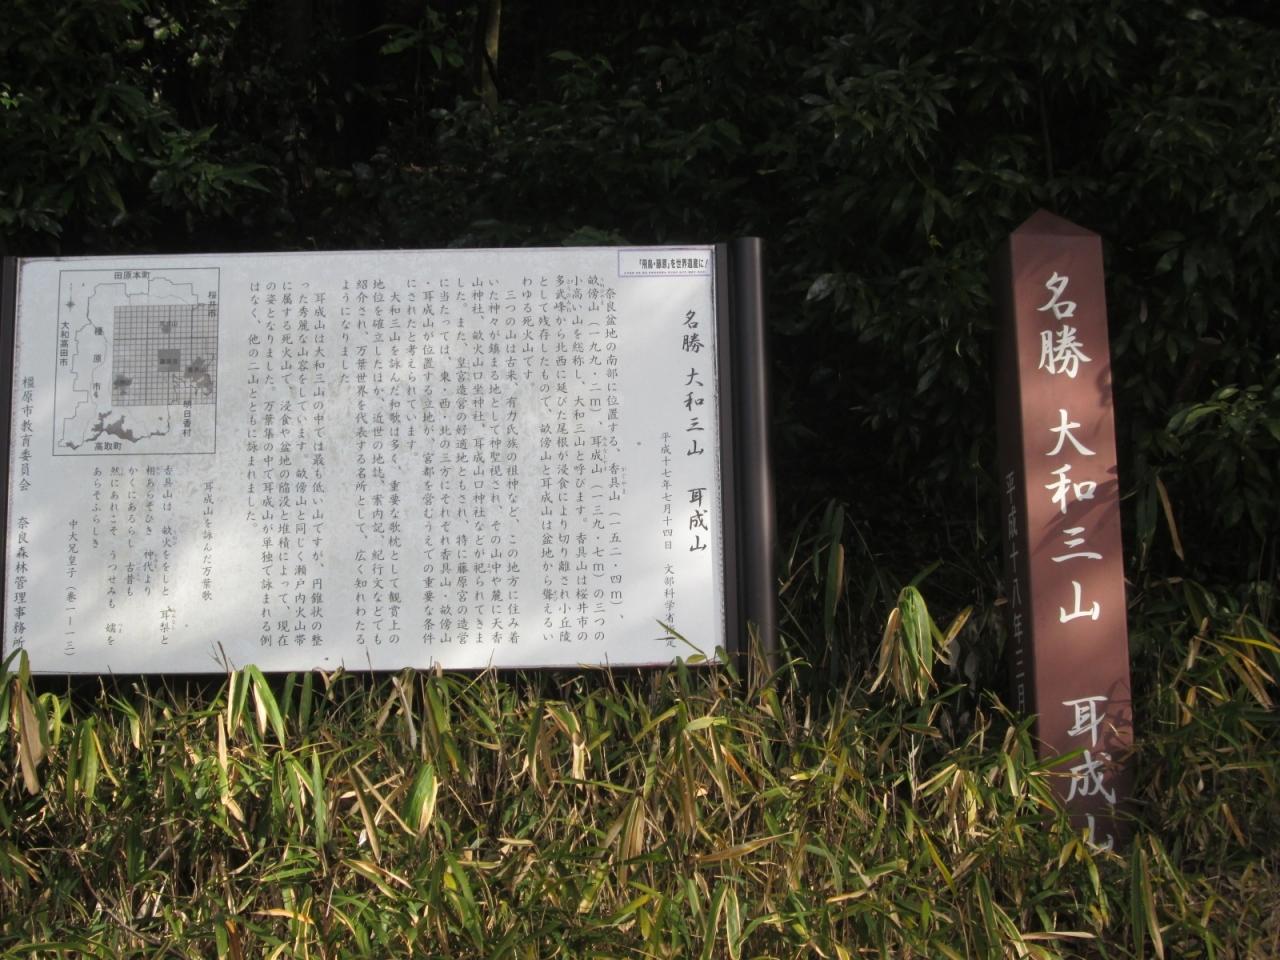 「飛鳥・藤原」を世界遺産に!
名勝 大和三山 耳成山
平成十七年七月十四日 文部科学省指定
奈良盆地の南部に位置する、香具山（一五二・四m）、
畝傍山（一九九・二m）、耳成山（一三九・七m）の三つの
小高い山を総称し、大和三山と呼びます。香具山は桜井市の
多武峰から北西に延びた尾根が浸食により切り離され小丘陵
として残存したもので、畝傍山と耳成山は盆地から聳えるい
わゆる死火山です。
三つの山は古来、有力氏族の祖神など、この地方に住み着
いた神々が鎮まる地として神聖視され、その山中や麓に天香
山神社、畝火山口坐神社、耳成山口神社などが祀られてきま
した。また、皇宮造営の好適地ともされ、特に藤原宮の造営
に当たっては、東・西・北の三方にそれぞれ香具山・畝傍山
・耳成山が位置する立地が、宮都を営むうえでの重要な条件
にされたと考えられています。
大和三山を詠んだ和歌は多く、重要な歌枕として観賞上の
地位を確立したほか、近世の地誌、案内記、紀行文などでも
紹介され、万葉世界を代表する名所として、広く知れわたる
ようになりました。
耳成山は大和三山の中では最も低い山ですが、円錐状の整
った秀麗な山容をしています。畝傍山と同じく瀬戸内火山帯
に属する死火山で、浸食や盆地の陥没と堆積によって、現在
の姿となりました。万葉集の中で耳成山が単独で詠まれる例
はなく、他の二山とともに詠まれました。
耳成山を詠んだ万葉歌
香具山は 畝火ををしと 耳梨と
相あらそひき 神代より
かくにあるらし 古昔も
然にあれこそ うつせみも 嬬を
あらそふらしき
中大兄皇子（巻一―一三）
田原本町
桜井市
橿原市
大和高田市
明日香村
高取町
橿原市教育委員会 奈良森林管理事務所
名勝 大和三山 耳成山
平成十八年三月